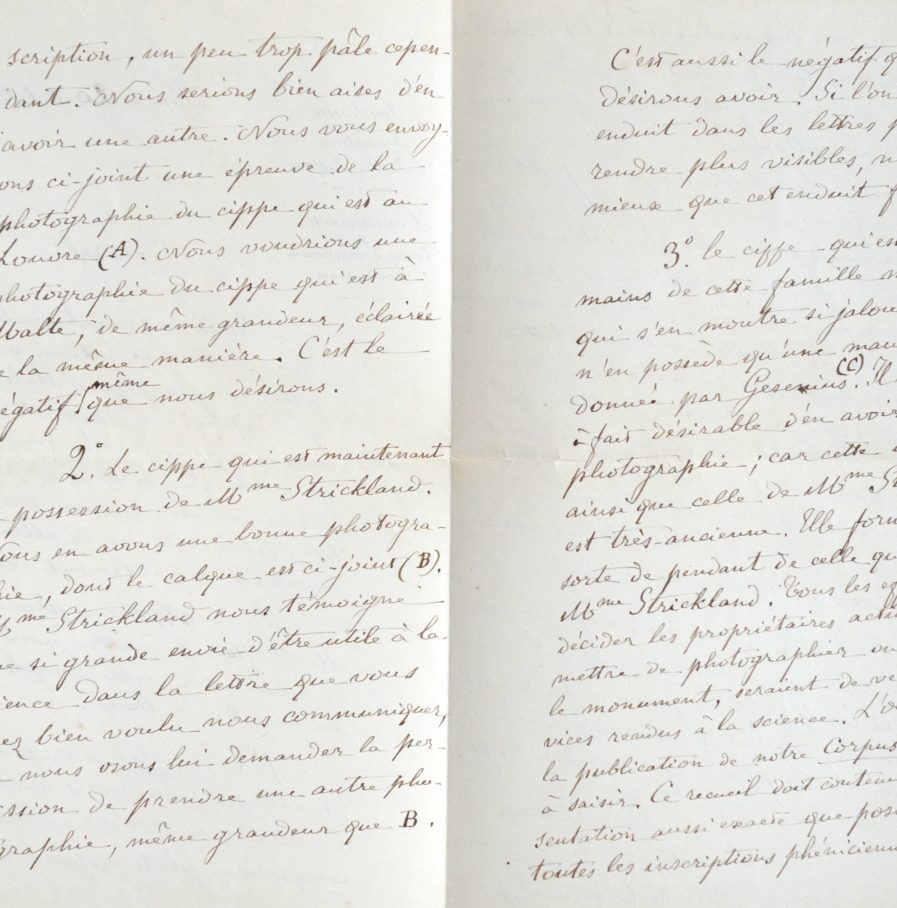 scription, un peu trop pâle cepen-
dant. Nous serions bien aises d'en
avoir une autre. Nous vous envoy-
ons ci-joint une épreuve de la
photographie du cippe qui est au
Louvre (A). Nous voudrions une
photographie du cippe qui est à
Malte, de même grandeur, éclairée
la même manière. C'est le
négatif même que nous désirons.
2º. Le cippe qui est maintenant
possession de Mme Strickland.
ous en avons une bonne photogra-
hie, dont le calque est ci-joint (B).
Mme Strickland nous témoigne
ne si grande envie d'être utile à la
ience dans la lettre que vous
ez bien voulu nous communiquer,
nous osons lui demander la per-
ission de prendre une autre pho-
graphie, même grandeur que B.
C'est aussi le négatif q
désirons avoir. Si l'on
enduit dans les lettres p
rendre plus visibles, n
mieux que cet enduit f
3º. le cippe qui es
mains de cette famille m
qui s'en montre si jalou
n'en possède qu'une mau
donnée par Gesenius (C). Il
à fait désirable d'en avoir
photographie ; car cette
ainsi que celle de Mme S
est très-ancienne. Elle form
sorte de pendant de celle qu
Mme Strickland. Tous les ef
décider les propriétaires actu
mettre de photographier ou
le monument, seraient de vé
vices rendus à la science. L'o
la publication de notre Corpus
à saisir. Ce recueil doit conteni
sentation aussi exacte que poss
toutes les inscriptions phénicienn